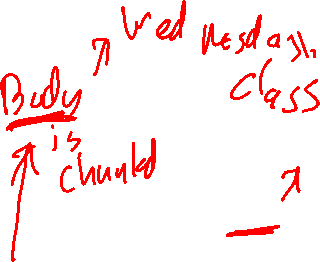 Wednesday
class
Body
is
Chunked